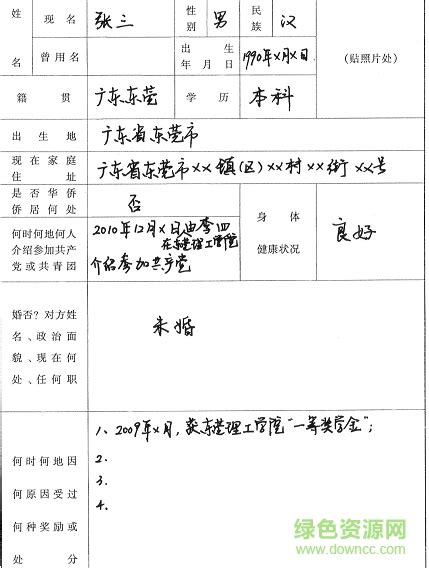 姓 现名 张三 性别 男 民族 汉 (贴照片处)
名 曾用名 出生年月日 1990年X月X日
籍贯 广东东莞 学历 本科
出生地 广东省东莞市
现在家庭住址 广东省东莞市XX镇(区)XX村XX街XX号
是否华侨侨居何处 否 身体健康状况 良好
何时何地何人 2010年12月X日由李四
介绍参加共产 在东莞理工学院
党或共青团 介绍参加共产党
婚否?对方姓
名、政治面 未婚
貌、现在何
处、任何职
1、2009年X月,获东莞理工学院"一等奖学金";
何时何地因 2.
何原因受过 3.
何种奖励或 4.
处分
绿色资源网
www.downcc.com